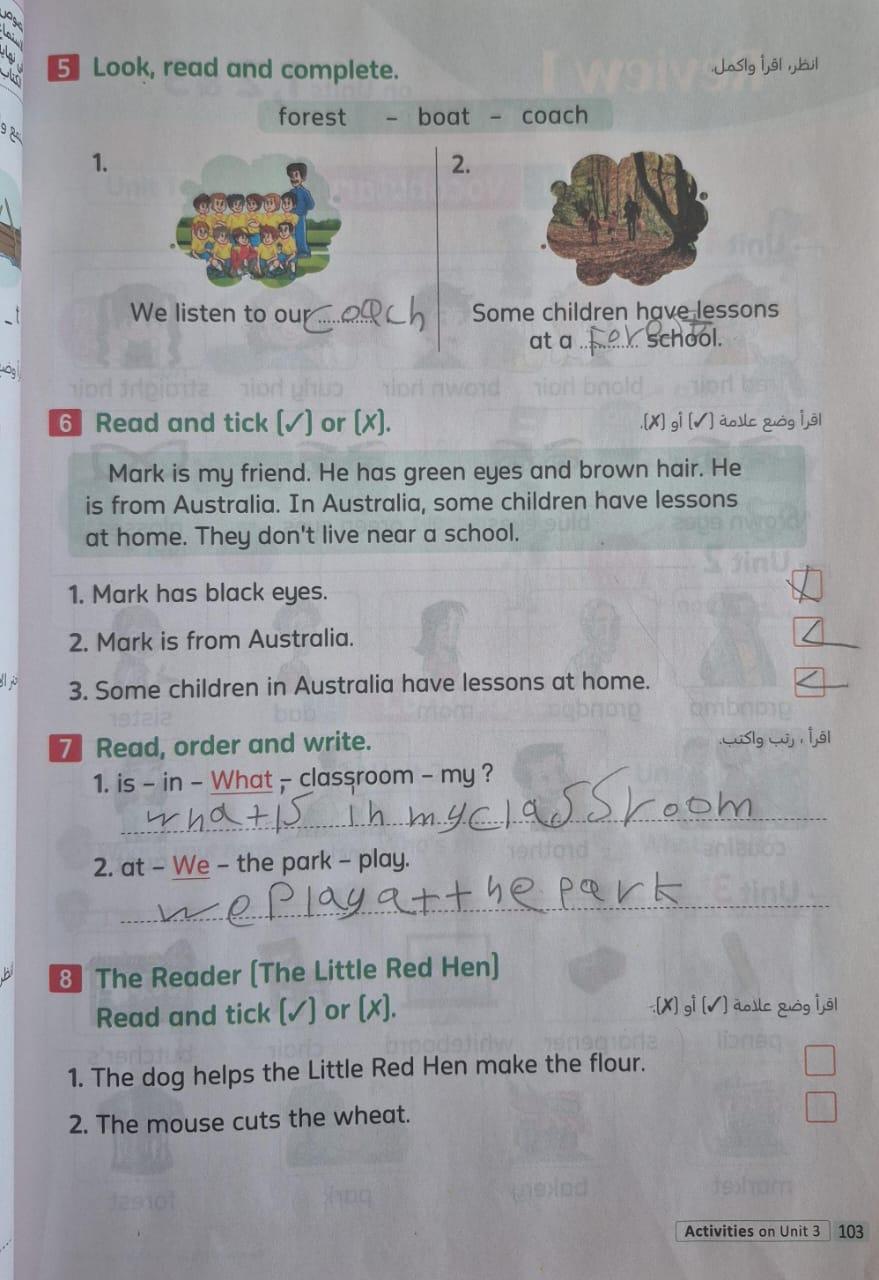 5 Look, read and complete.
انظر، اقرأ واكمل.
forest – boat – coach
1.
2.
We listen to our coach
Some children have lessons
at a forest school.
6 Read and tick (✓) or (✗).
اقرأ وضع علامة (✓) أو (✗).
Mark is my friend. He has green eyes and brown hair. He
is from Australia. In Australia, some children have lessons
at home. They don't live near a school.
1. Mark has black eyes. ✗
2. Mark is from Australia. ✓
3. Some children in Australia have lessons at home. ✓
7 Read, order and write.
اقرأ، رتب واكتب.
1. is – in – What – classroom – my ?
what is in my classroom
2. at – We – the park – play.
we play at the park
8 The Reader (The Little Red Hen)
Read and tick (✓) or (✗).
اقرأ وضع علامة (✓) أو (✗).
1. The dog helps the Little Red Hen make the flour.
2. The mouse cuts the wheat.
Activities on Unit 3 103